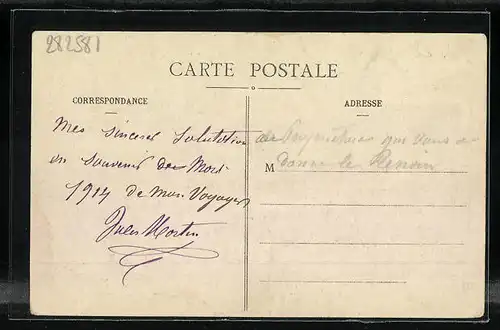 282581
CARTE POSTALE
CORRESPONDANCE
ADRESSE
Mes sincères Salutation
en souvenir de
1914 de mon Voyage
Jules Martin
que vous a
M donne le